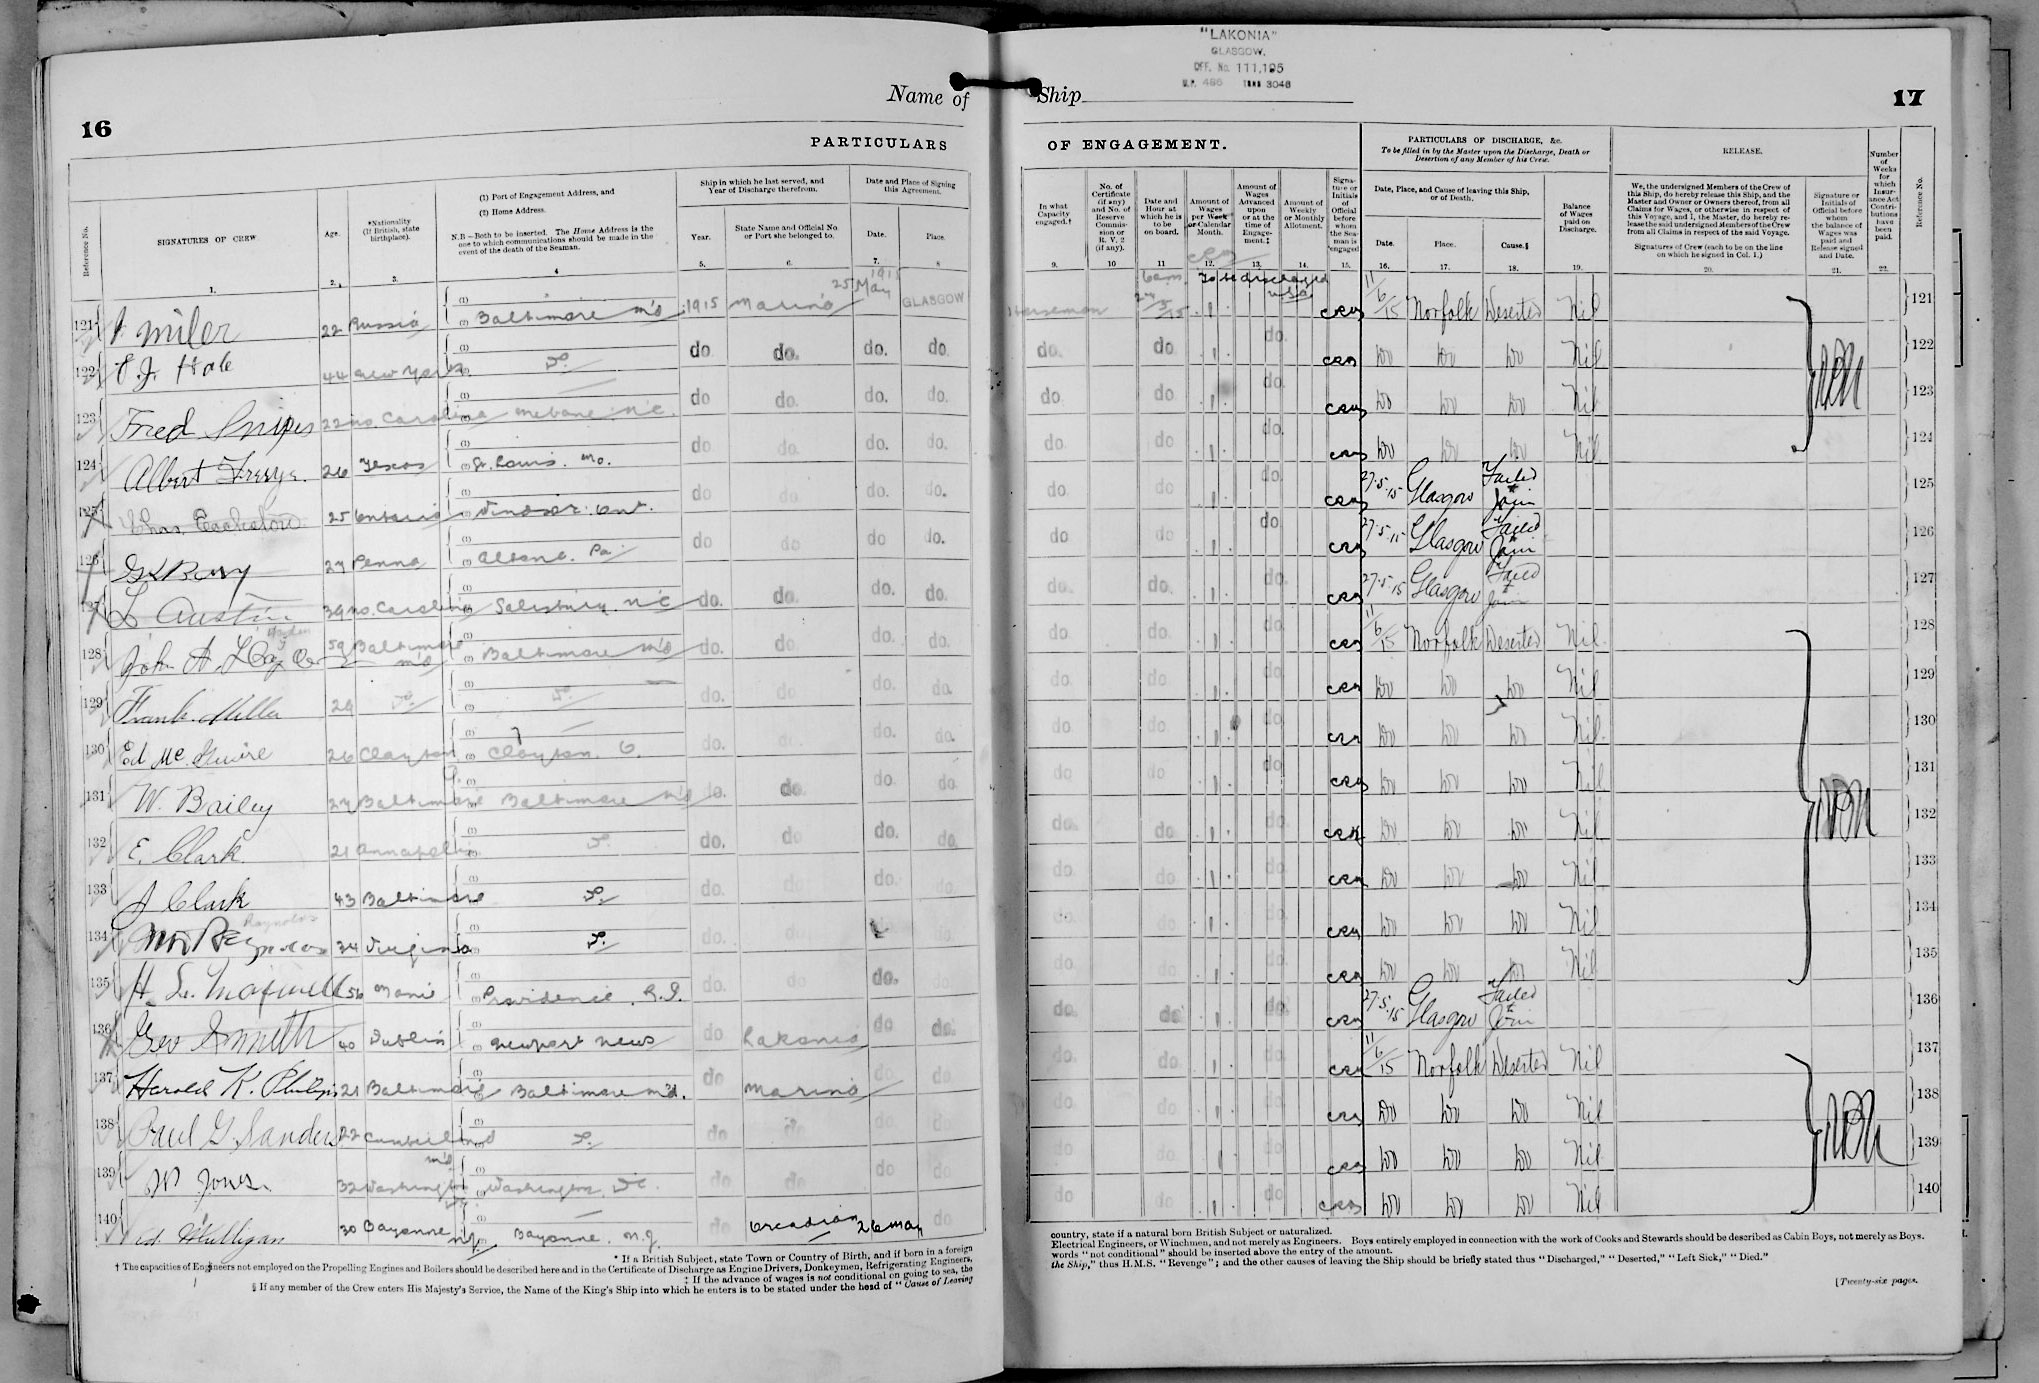 "LAKONIA"
GLASGOW.
OFF. No. 111,195
Name of Ship
16
17
PARTICULARS OF ENGAGEMENT.
PARTICULARS OF DISCHARGE, &c.
To be filled in by the Master upon the Discharge, Death or Desertion of any Member of his Crew.
RELEASE.
Reference No.
SIGNATURES OF CREW.
Age.
*Nationality (If British, state birthplace).
(1) Port of Engagement Address, and
(2) Home Address.
N.B.—Both to be inserted. The Home Address is the one to which communications should be made in the event of the death of the Seaman.
Ship in which he last served, and Year of Discharge therefrom.
Year.
State Name and Official No. or Port she belonged to.
Date and Place of Signing this Agreement.
Date.
Place.
In what Capacity engaged.†
No. of Certificate (if any) and No. of Reserve Commission or R. V. 2 (if any).
Date and Hour at which he is to be on board.
Amount of Wages per Week or Calendar Month.
Amount of Wages Advanced upon or at the time of Engagement.‡
Amount of Weekly or Monthly Allotment.
Signature or Initials of Official before whom the Seaman is engaged
Date, Place, and Cause of leaving this Ship, or of Death.
Date.
Place.
Cause.§
Balance of Wages paid on Discharge.
We, the undersigned Members of the Crew of this Ship, do hereby release this Ship, and the Master and Owner or Owners thereof, from all Claims for Wages, or otherwise in respect of this Voyage, and I, the Master, do hereby release the said undersigned Members of the Crew from all Claims in respect of the said Voyage.
Signatures of Crew (each to be on the line on which he signed in Col. 1.)
Signature or Initials of Official before whom the balance of Wages was paid and Release signed and Date.
Number of Weeks for which Insurance Act Contributions have been paid.
Reference No.
1. 2. 3. 4 5. 6. 7. 8 9. 10 11 12. 13. 14. 15. 16. 17. 18. 19. 20. 21. 22.
121 Miler 22 Russia Baltimore Md 1915 Marino 25 May 1915 GLASGOW Horseman 6 am To be discharged USA 11/6/15 Norfolk Deserted Nil 121
122 Hole 44 New York do do do. do. do do. do. do. Nil 122
123 Fred Snipes 22 No. Carolina Mebane N.C. do do. do. do. do. do. do. Nil 123
124 Albert 26 Texas St. Louis. Mo. do do. do. do. do do do. Nil 124
125 Chas 25 Ontario Windsor Ont. do do do. do. do do do. 27.5.15 Glasgow Failed to Join 125
126 Berry 27 Penna Pa do do do do. do do do 27.5.15 Glasgow Failed to Join 126
127 L Austin 39 So. Carolina Salisbury N.C do. do. do. do. do do. do. 27.5.15 Glasgow Failed to Join 127
128 John A. 59 Baltimore Md Baltimore Md do. do do. do. do do. do 11/6/15 Norfolk Deserted Nil 128
129 Frank Miller 29 Do. Do. do. do do. do. do do. do Nil 129
130 Ed McGuire 26 Clayton Clayton. O. do. do do. do. do do. do Nil 130
131 W. Bailey 27 Baltimore Baltimore Md do. do. do do. do do do Nil 131
132 E. Clark 21 Annapolis Do. do. do do. do. do. do. do Nil 132
133 J Clark 43 Baltimore Do. do. do do. do do. do. do Nil 133
134 Reynolds 34 Virginia Do. do. do do. do do do Nil 134
135 H. L. Maxwell 56 Providence, R.I. do. do. do. do do. do. do Nil 135
136 Geo Smith 40 Dublin Newport News do Lakonia do do. do. do do. 27.5.15 Glasgow Failed to Join 136
137 Harold K. Philips 21 Baltimore Baltimore Md. do Marino do do. do. do. do. 11/6/15 Norfolk Deserted Nil 137
138 Paul G. Sanders 22 Cumberland Md Do. do do do do do. do. do Nil 138
139 W Jones 32 Washington Washington DC. do do do do do. do. do Nil 139
140 Ed Mulligan 30 Bayonne N.J. Bayonne. N.J. do Arcadian 26 May do do do. do Nil 140
* If a British Subject, state Town or Country of Birth, and if born in a foreign country, state if a natural born British Subject or naturalized.
† The capacities of Engineers not employed on the Propelling Engines and Boilers should be described here and in the Certificate of Discharge as Engine Drivers, Donkeymen, Refrigerating Engineers, Electrical Engineers, or Winchmen, and not merely as Engineers. Boys entirely employed in connection with the work of Cooks and Stewards should be described as Cabin Boys, not merely as Boys.
‡ If the advance of wages is not conditional on going to sea, the words "not conditional" should be inserted above the entry of the amount.
§ If any member of the Crew enters His Majesty's Service, the Name of the King's Ship into which he enters is to be stated under the head of "Cause of Leaving the Ship," thus H.M.S. "Revenge"; and the other causes of leaving the Ship should be briefly stated thus "Discharged," "Deserted," "Left Sick," "Died."
[Twenty-six pages.